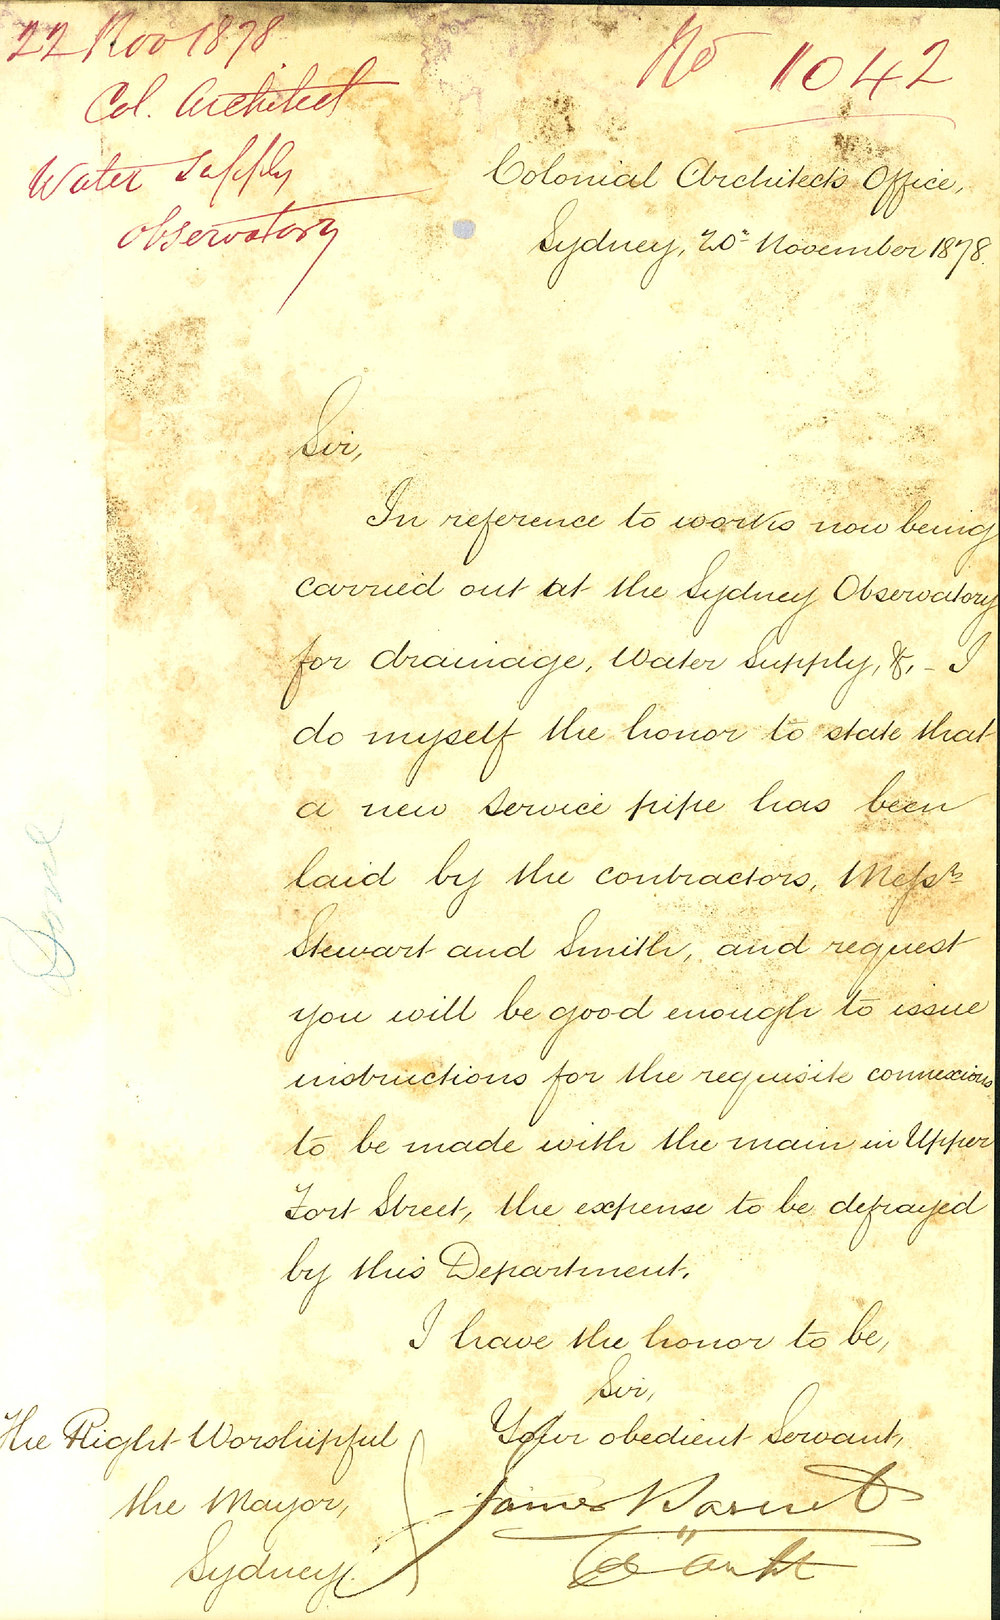 22 Nov 1878
Col. Architect
Water Supply
Observatory
No 1042
Colonial Architect's Office,
Sydney, 20th November 1878.
Sir,
In reference to works now being
carried out at the Sydney Observatory
for drainage, Water Supply, &c, - I
do myself the honor to state that
a new service pipe has been
laid by the contractors, Messrs
Stewart and Smith, and request
you will be good enough to issue
instructions for the requisite connexions
to be made with the main in Upper
Fort Street, the expense to be defrayed
by this Department.
I have the honor to be,
Sir,
Your obedient Servant,
James Barnet
Col Archt
The Right Worshipful
the Mayor,
Sydney.
Done